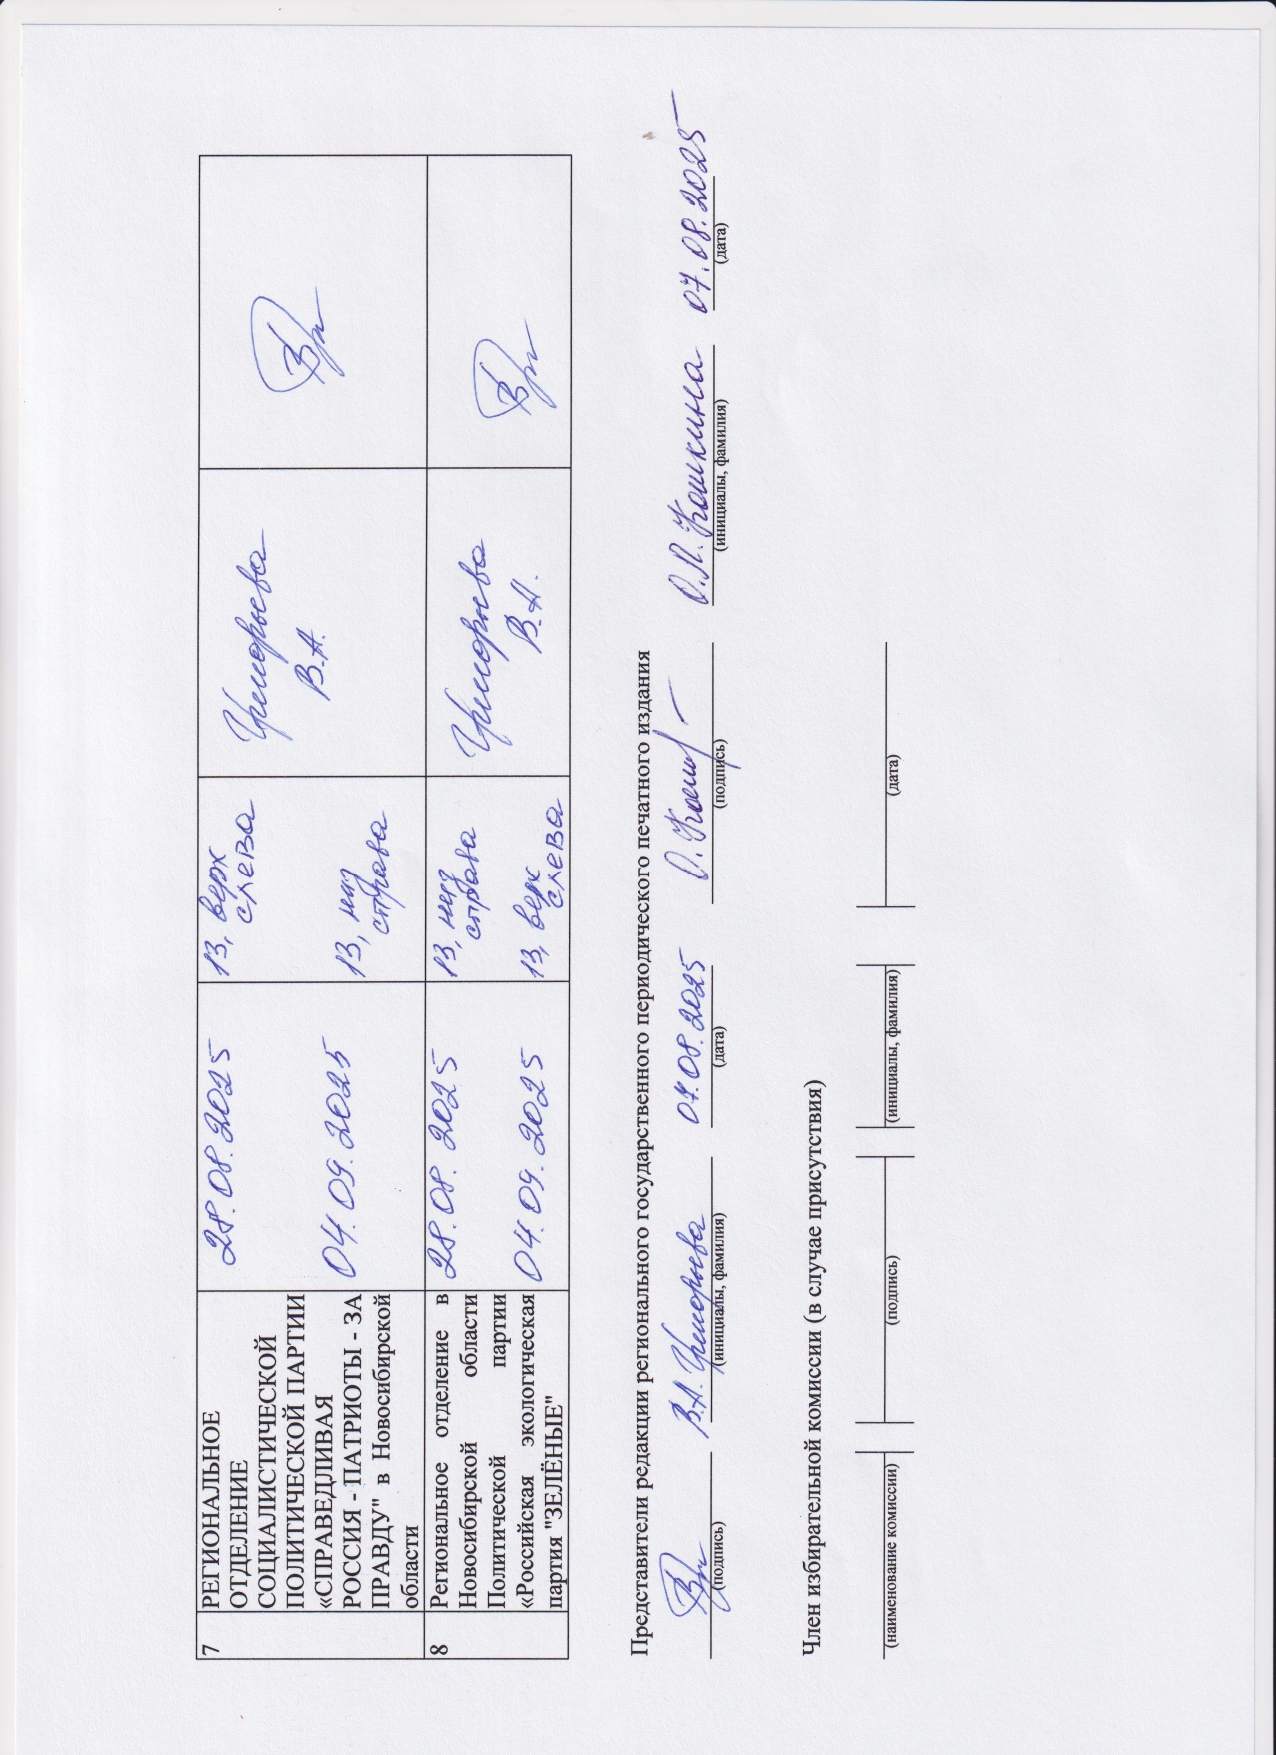 7
РЕГИОНАЛЬНОЕ
ОТДЕЛЕНИЕ
СОЦИАЛИСТИЧЕСКОЙ
ПОЛИТИЧЕСКОЙ ПАРТИИ
«СПРАВЕДЛИВАЯ
РОССИЯ - ПАТРИОТЫ - ЗА
ПРАВДУ" в Новосибирской
области
28.08.2025
04.09.2025
13, верх
слева
13, низ
справа
Григорьева
В.А.
8
Региональное отделение в
Новосибирской области
Политической партии
«Российская экологическая
партия "ЗЕЛЁНЫЕ"
28.08.2025
04.09.2025
13, низ
справа
13, верх
слева
Григорьева
В.А.
Представители редакции регионального государственного периодического печатного издания
В.А. Григорьева 07.08.2025 О.П. Кошкина 07.08.2025
(подпись) (инициалы, фамилия) (дата) (подпись) (инициалы, фамилия) (дата)
Член избирательной комиссии (в случае присутствия)
(наименование комиссии) (подпись) (инициалы, фамилия) (дата)